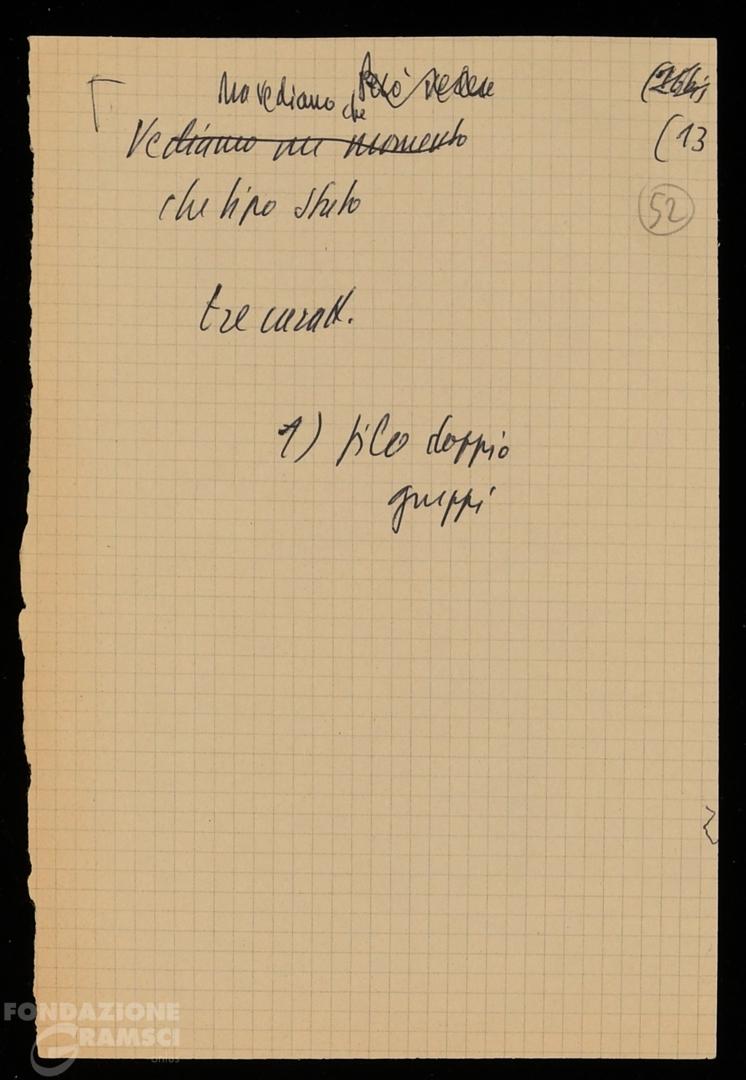 Ma vediamo che Però vedere (26bis
Vediamo un momento (13
che tipo Stato 52
tre caratt.
1) tipo doppio
gruppi
FONDAZIONE
GRAMSCI
onlus